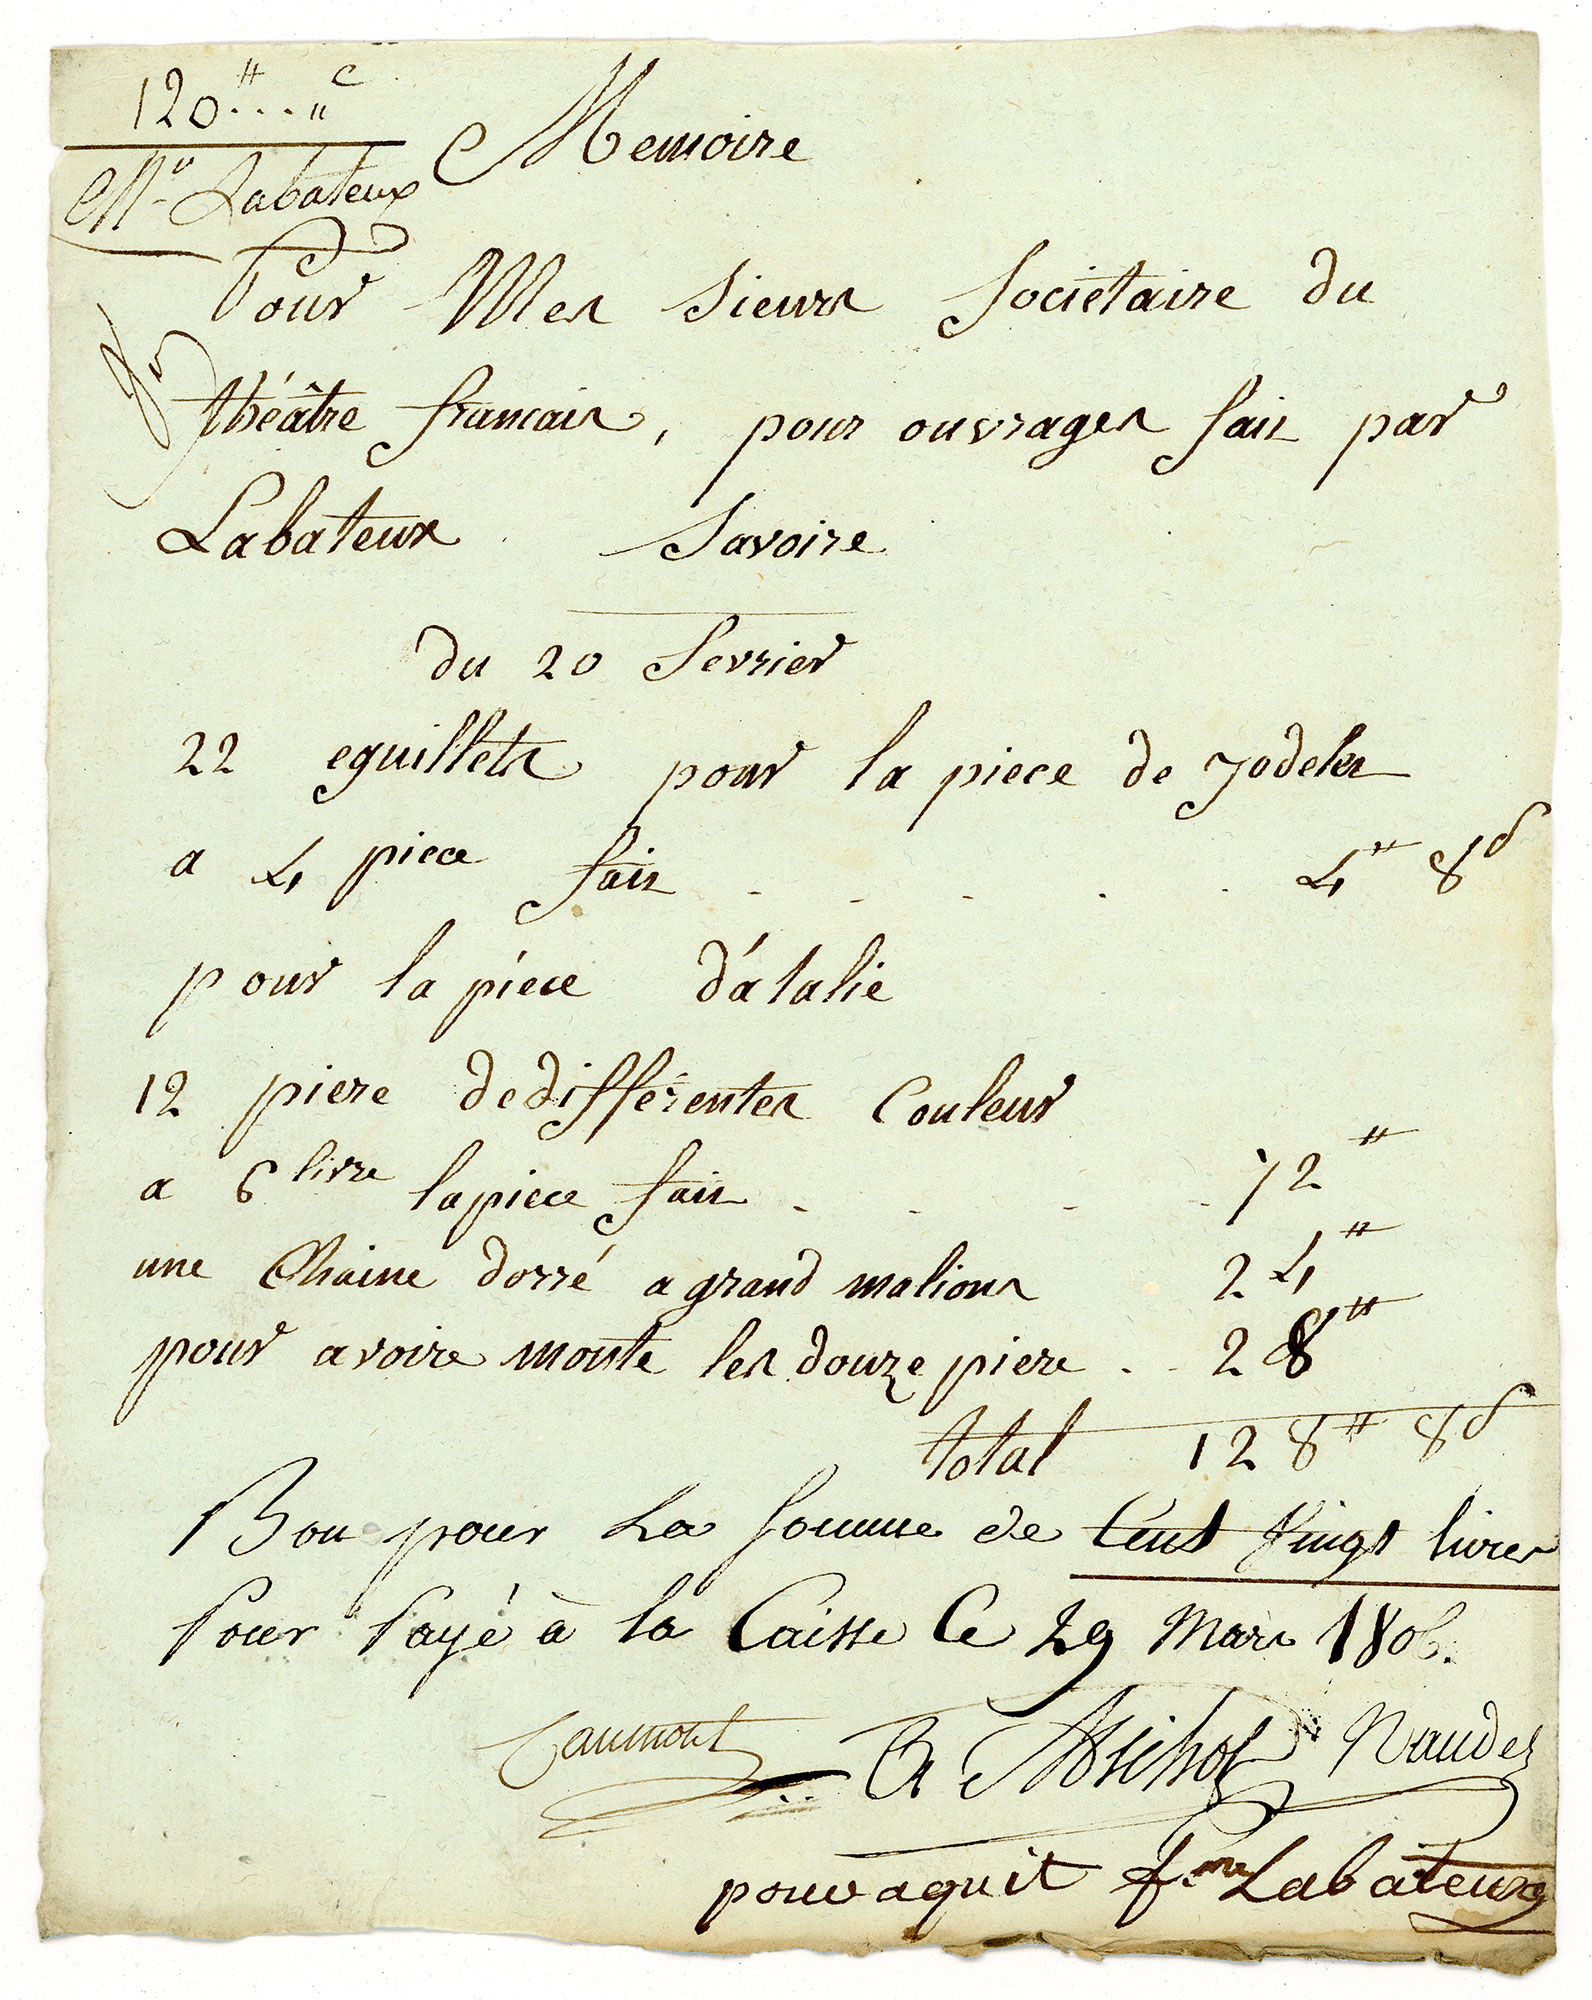 120 ₶ ... " c
Mr Labateux
Memoire
Pour Mes sieurs societaire du
théâtre francais, pour ouvrages fait par
Labateux savoire
du 20 fevrier
22 eguillets pour la piece de jodeles
a 4 piece fait 4 ₶ 8 s
pour la piéce d'atalie
12 piere de différentes couleur
a 6 livre la piece fait 72 ₶
une chaine dorré a grand malions 24 ₶
pour avoire monte les douze piere 28 ₶
total 128 ₶ 8 s
Bon pour la somme de Cent vingt livres
Pour payé à la Caisse Ce 29 Mars 1806.
Caumont Michot Naudet
pour aquit fme Labateux